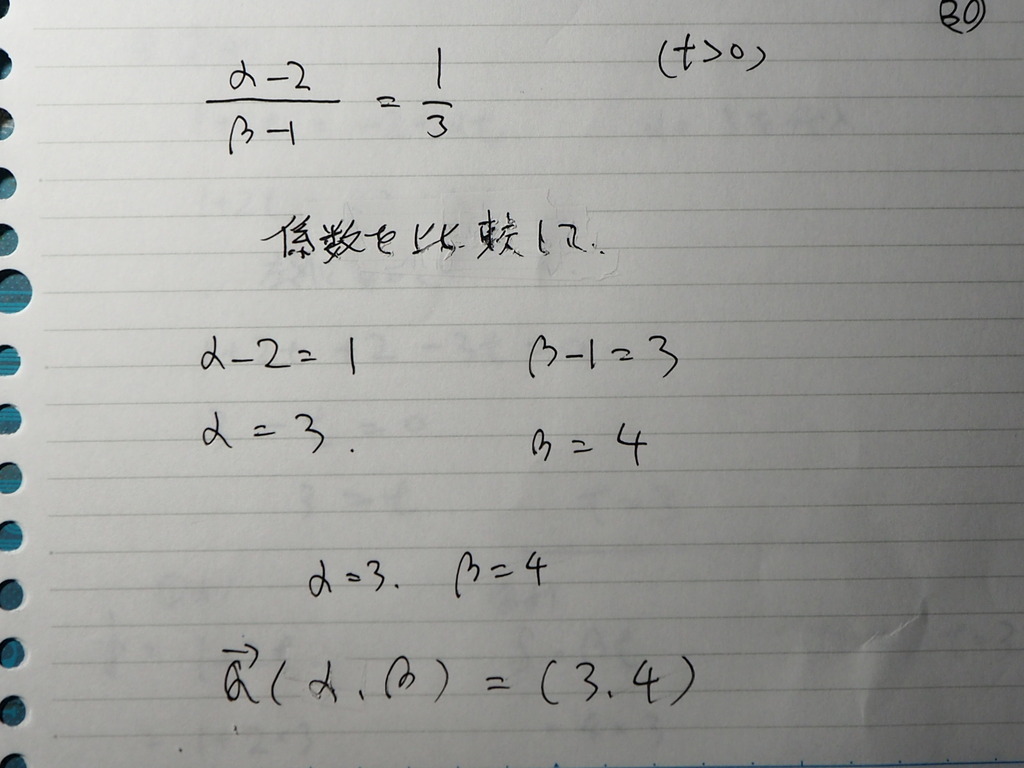 30)
(t>0)
α-2/β-1 = 1/3
係数を比較して.
α-2=1 β-1=3
α=3. β=4
α=3. β=4
a⃗(α.β)=(3.4)